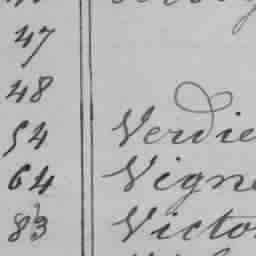 47
48
54 Verdie
64 Vigne
83 Victo